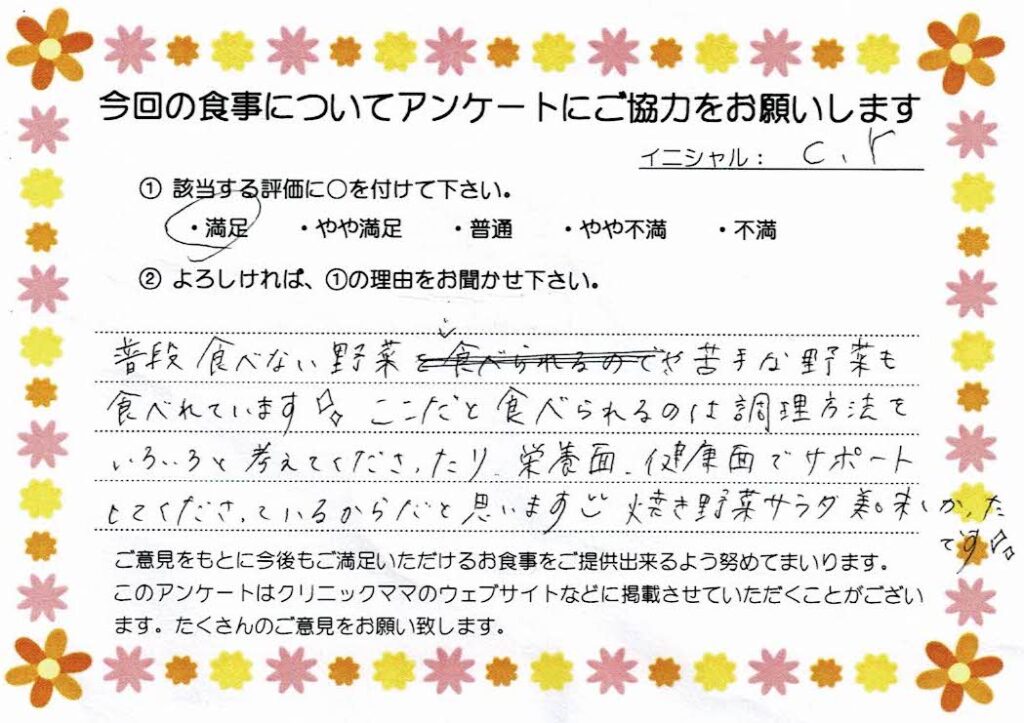 今回の食事についてアンケートにご協力をお願いします
イニシャル： C.Y
① 該当する評価に○を付けて下さい。
・満足 ・やや満足 ・普通 ・やや不満 ・不満
② よろしければ、①の理由をお聞かせ下さい。
普段食べない野菜を食べられるのでや苦手な野菜も
食べれています✨ ここだと食べられるのは調理方法を
いろいろと考えてくださったり、栄養面、健康面でサポート
してくださっているからだと思います 焼き野菜サラダ美味しかった
です✨
ご意見をもとに今後もご満足いただけるお食事をご提供出来るよう努めてまいります。
このアンケートはクリニックママのウェブサイトなどに掲載させていただくことがござい
ます。たくさんのご意見をお願い致します。